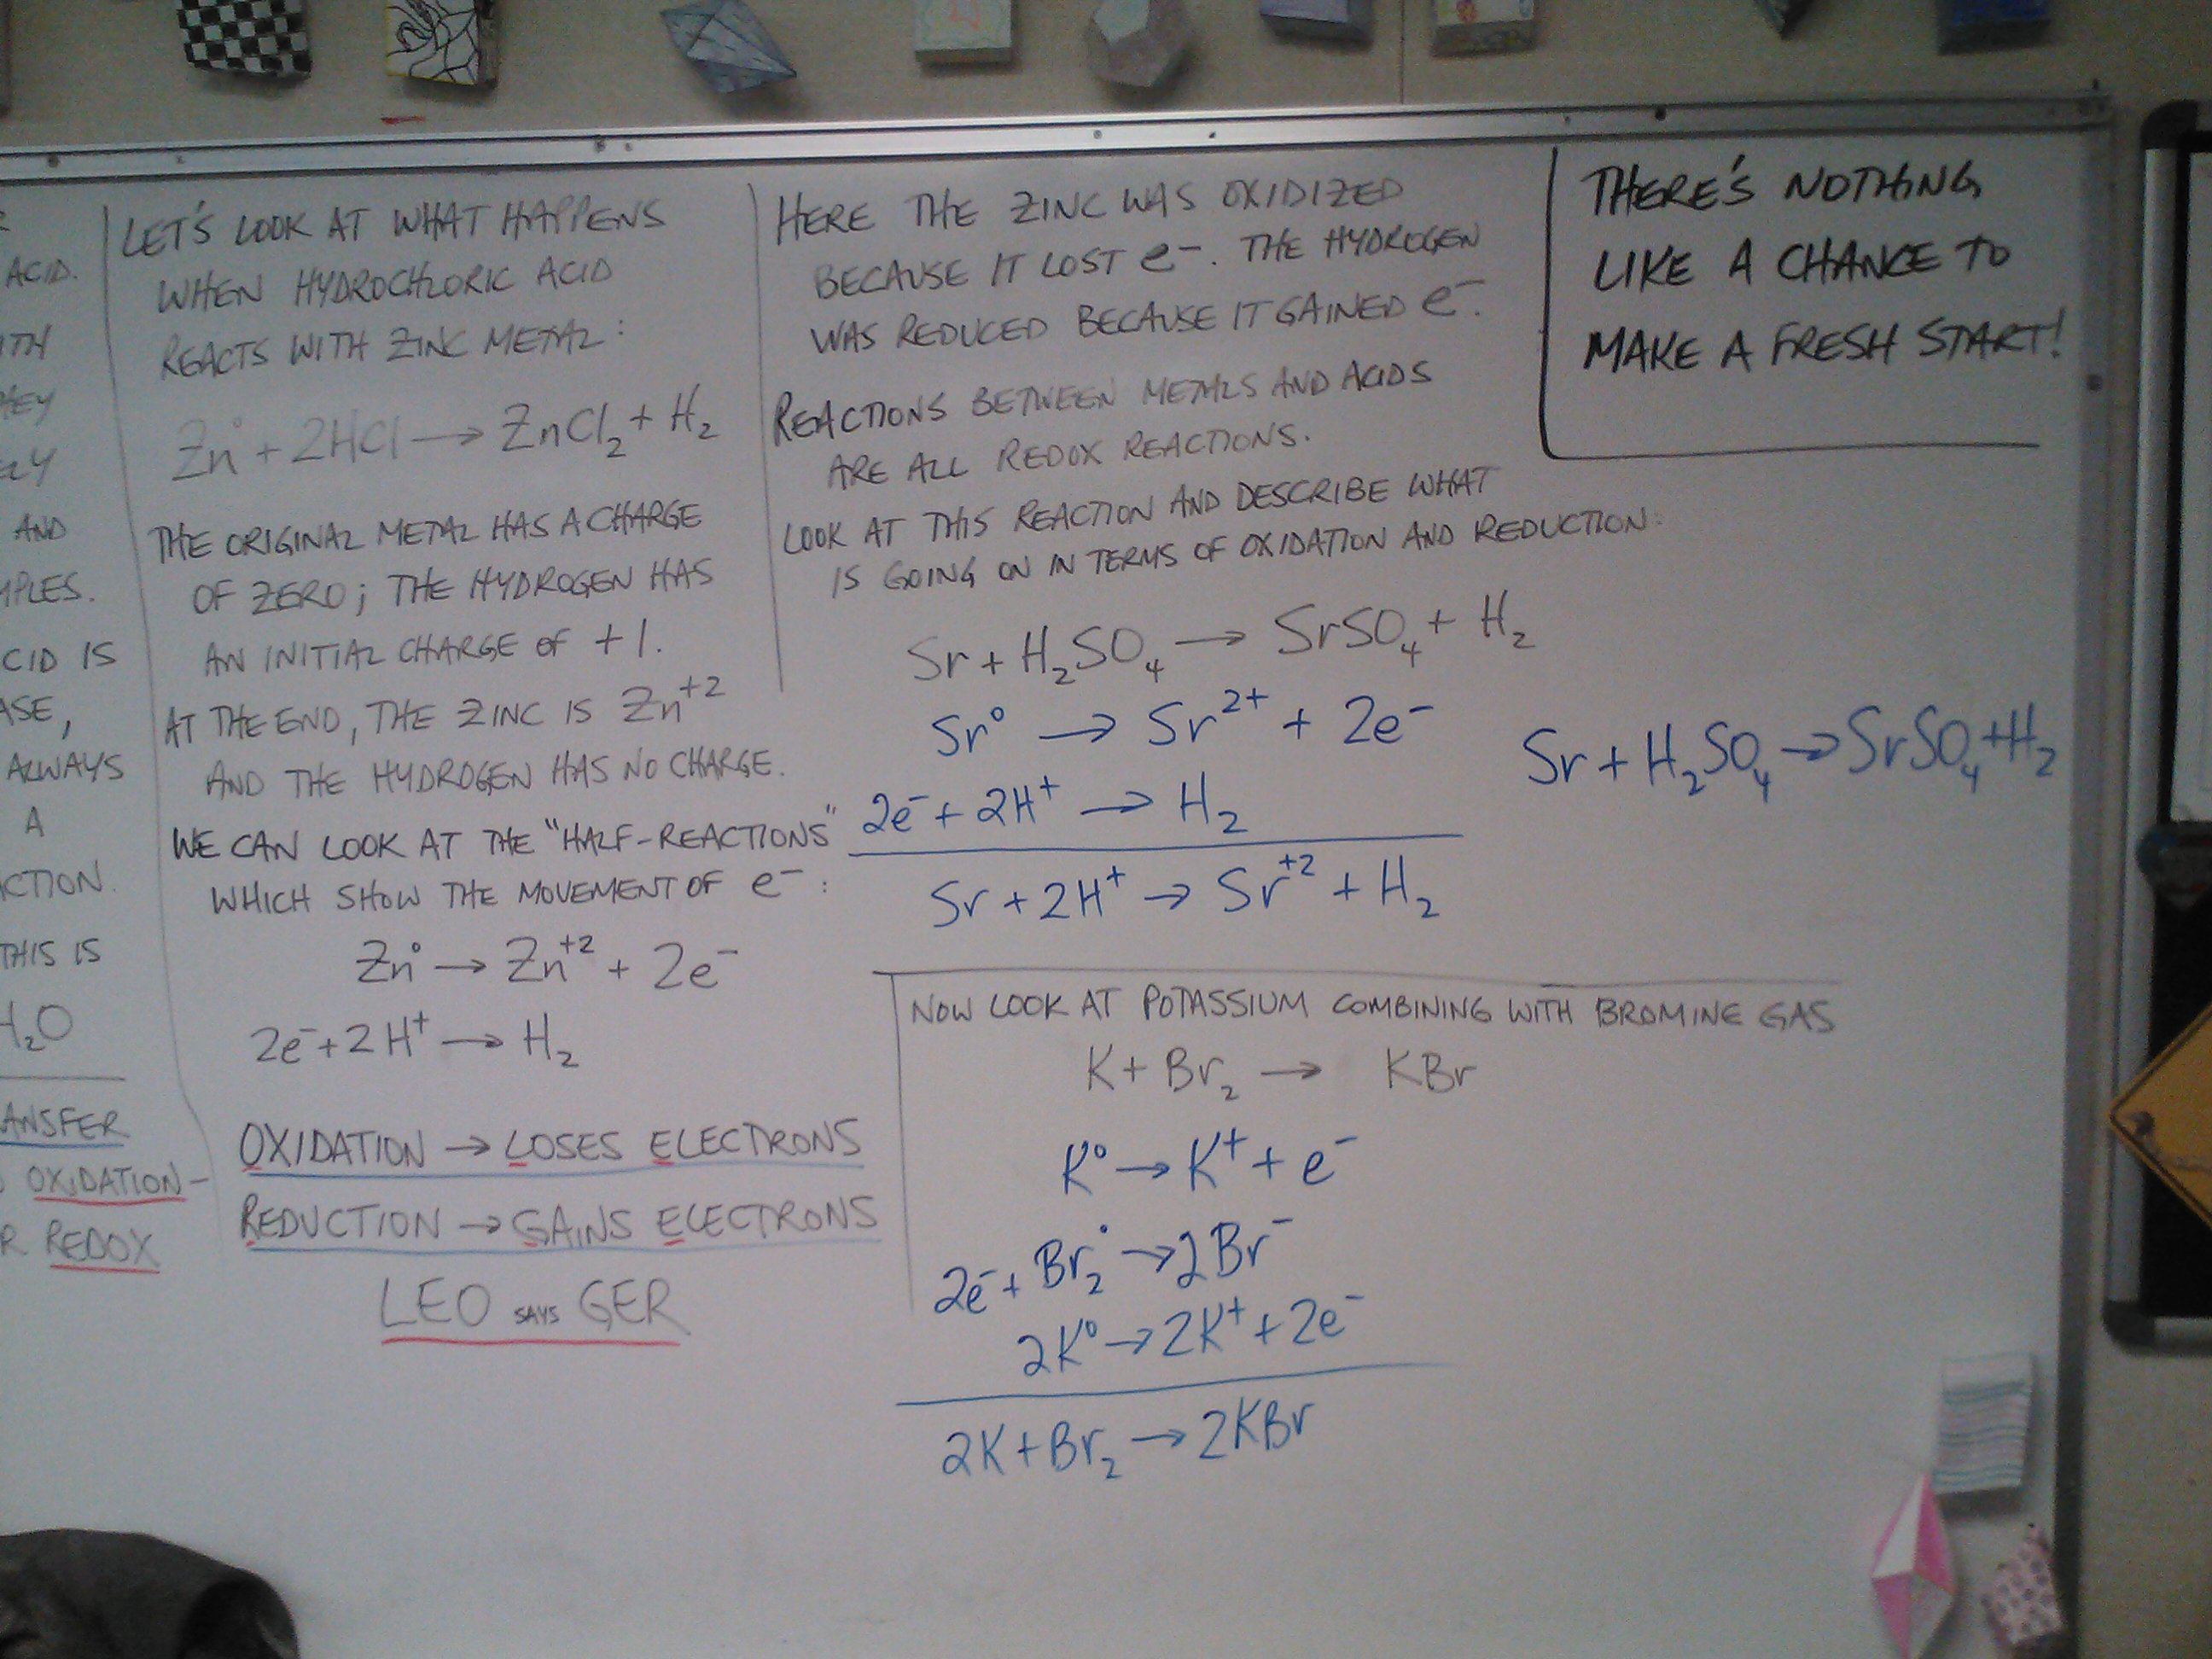 ACID.
AND
CID IS
ASE,
ALWAYS
A
CTION.
THIS IS
H₂O
ANSFER
OXIDATION-
R REDOX
LET'S LOOK AT WHAT HAPPENS
WHEN HYDROCHLORIC ACID
REACTS WITH ZINC METAL:
Zn° + 2HCl → ZnCl₂ + H₂
THE ORIGINAL METAL HAS A CHARGE
OF ZERO; THE HYDROGEN HAS
AN INITIAL CHARGE OF +1.
AT THE END, THE ZINC IS Zn⁺²
AND THE HYDROGEN HAS NO CHARGE.
WE CAN LOOK AT THE "HALF-REACTIONS"
WHICH SHOW THE MOVEMENT OF e⁻:
Zn° → Zn⁺² + 2e⁻
2e⁻ + 2H⁺ → H₂
OXIDATION → LOSES ELECTRONS
REDUCTION → GAINS ELECTRONS
LEO SAYS GER
HERE THE ZINC WAS OXIDIZED
BECAUSE IT LOST e⁻. THE HYDROGEN
WAS REDUCED BECAUSE IT GAINED e⁻.
REACTIONS BETWEEN METALS AND ACIDS
ARE ALL REDOX REACTIONS.
LOOK AT THIS REACTION AND DESCRIBE WHAT
IS GOING ON IN TERMS OF OXIDATION AND REDUCTION:
Sr + H₂SO₄ → SrSO₄ + H₂
Sr⁰ → Sr²⁺ + 2e⁻
2e⁻ + 2H⁺ → H₂
Sr + 2H⁺ → Sr⁺² + H₂
Sr + H₂SO₄ → SrSO₄ + H₂
NOW LOOK AT POTASSIUM COMBINING WITH BROMINE GAS
K + Br₂ → KBr
K⁰ → K⁺ + e⁻
2e⁻ + Br₂° → 2Br⁻
2K⁰ → 2K⁺ + 2e⁻
2K + Br₂ → 2KBr
THERE'S NOTHING
LIKE A CHANCE TO
MAKE A FRESH START!